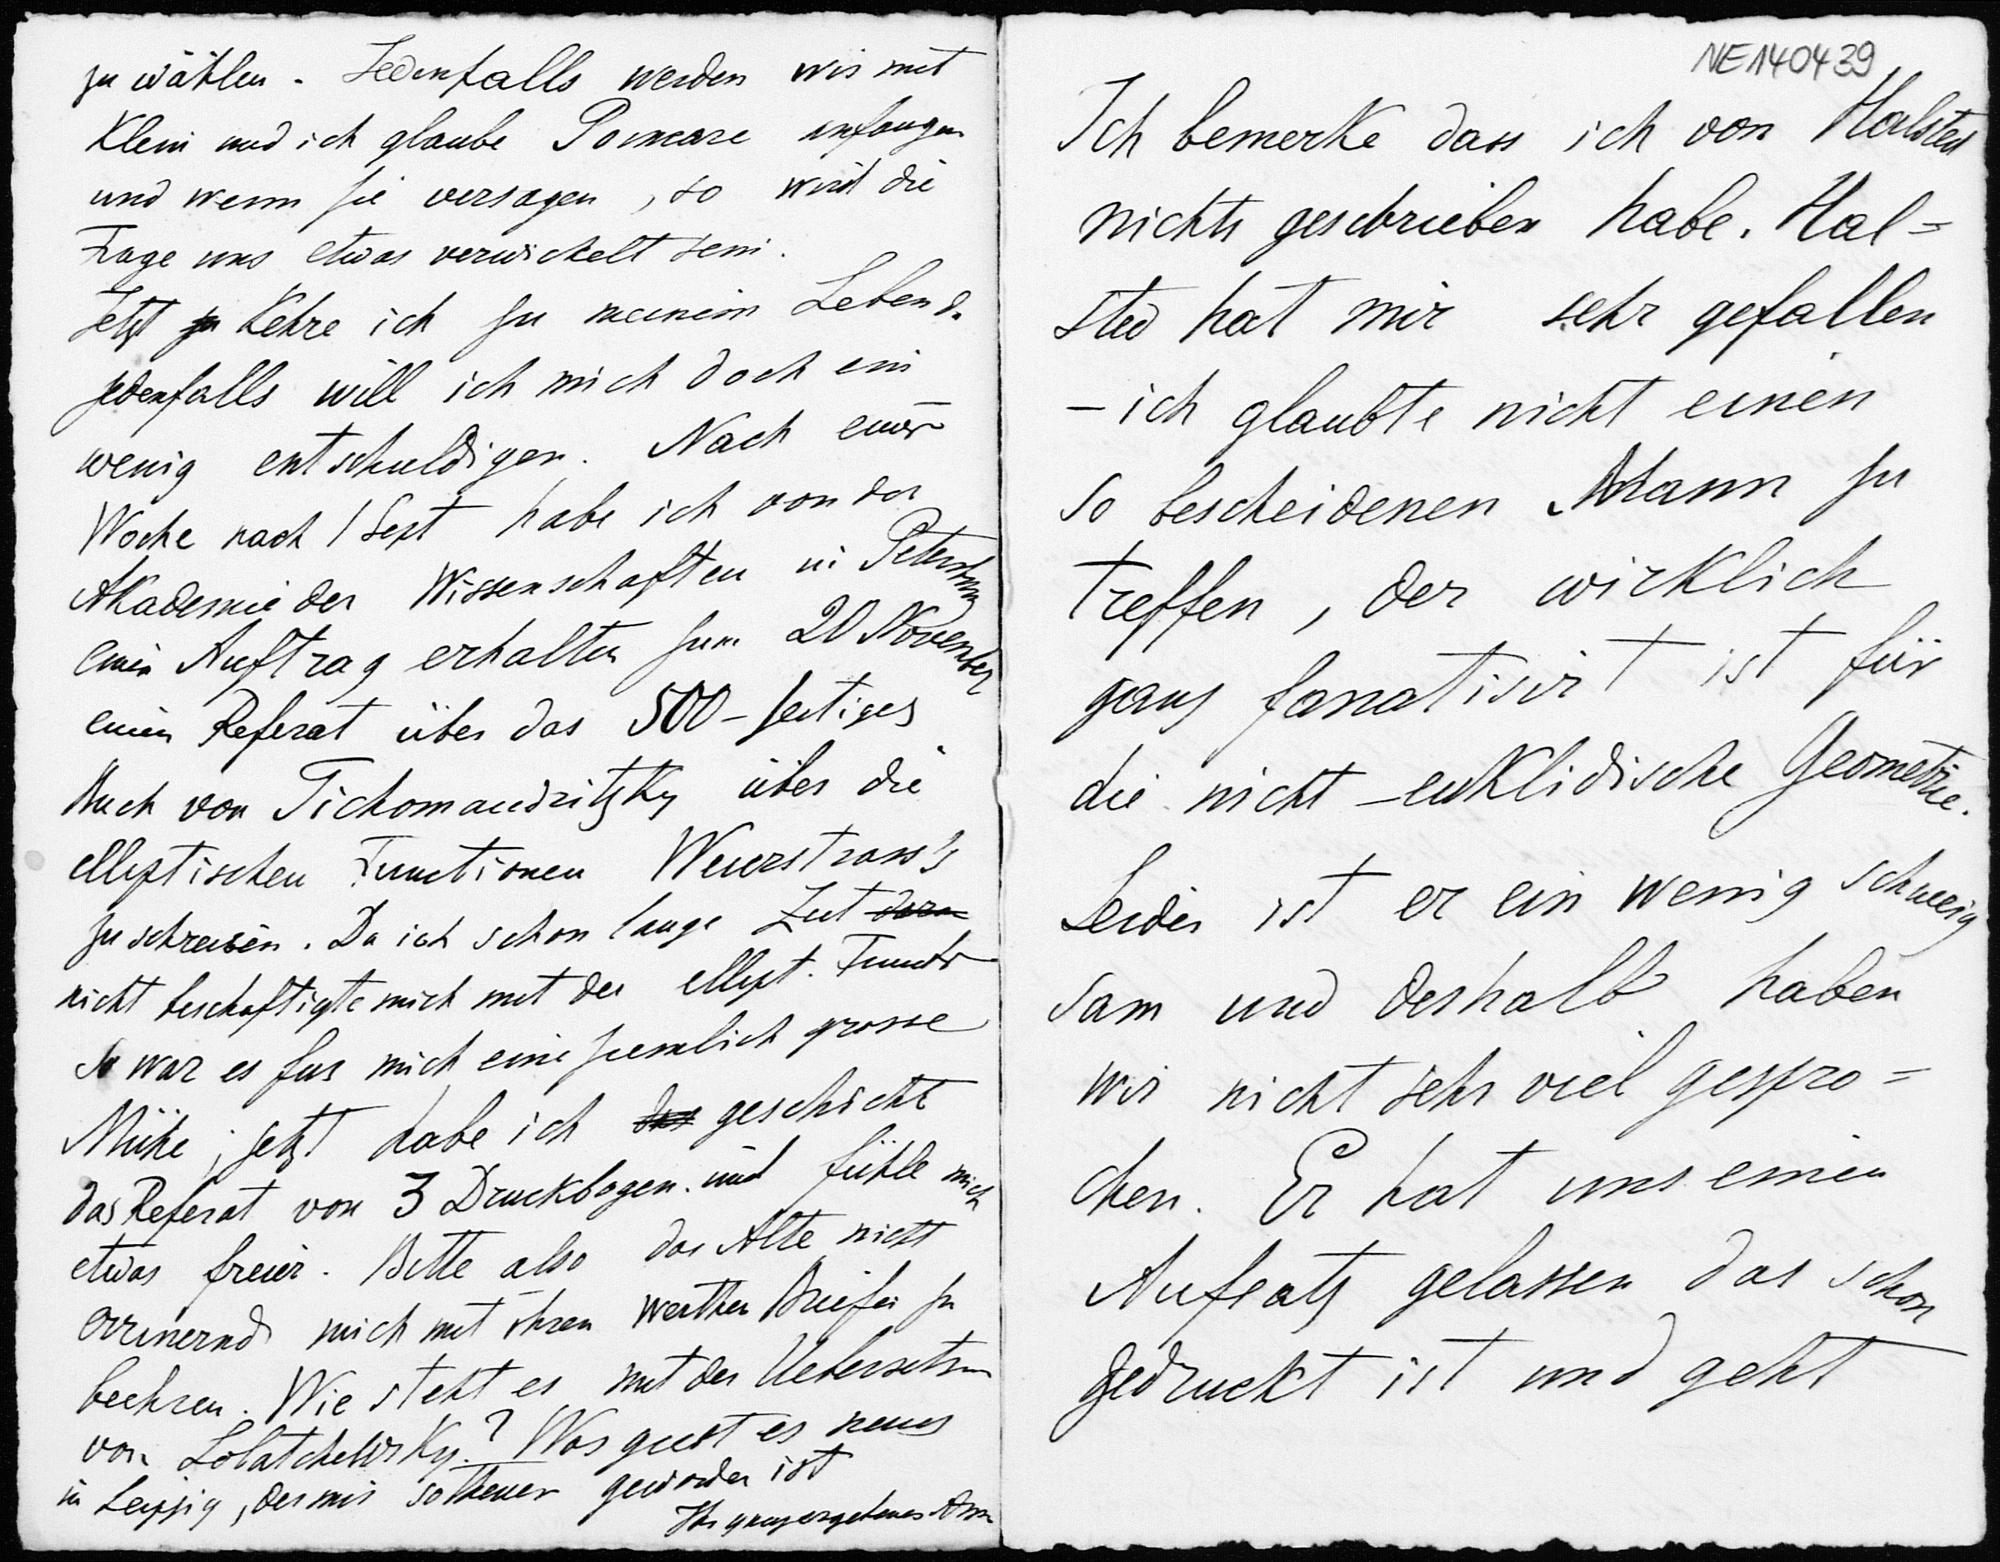 zu wählen. Jedenfalls werden wir mit
Klein und ich glaube Poincare anfangen
und wenn sie versagen, so wird die
Frage uns etwas verwickelt sein.
Jetzt kehre ich zu meinem Leben &
jedenfalls will ich mich doch ein
wenig entschuldigen. Nach einer
Woche nach 1 Sept habe ich von der
Akademie der Wissenschaften in Petersburg
einen Auftrag erhalten zum 20 November
einen Referat über das 500-seitiges
Buch von Tichomandritzky über die
elliptischen Functionen Weierstrass's
zu schreiben. Da ich schon lange Zeit
nicht beschäftigte mich mit der ellipt. Funct
so war es fur mich eine ziemlich grosse
Mühe, jetzt habe ich geschickt
das Referat von 3 Druckbogen und fühle mich
etwas freier. Bitte also das Alte nicht
errinernd mich mit ihren werthen Briefen zu
beehren. Wie steht es mit der Uebersetzun
von Lobatchewsky? Was giebt es neues
in Leipzig, der mir so theuer geworden ist
Ihr ganz ergebener
NE140439
Ich bemerke dass ich von Halsted
nichts geschrieben habe. Hal=
sted hat mir sehr gefallen
- ich glaubte nicht einen
so bescheidenen Mann zu
treffen, der wirklich
ganz fanatisirt ist für
die nicht-euklidische Geometrie.
Leider ist er ein wenig schweig
sam und deshalb haben
wir nicht sehr viel gespro=
chen. Er hat uns einen
Aufsatz gelassen das schon
gedruckt ist und geht